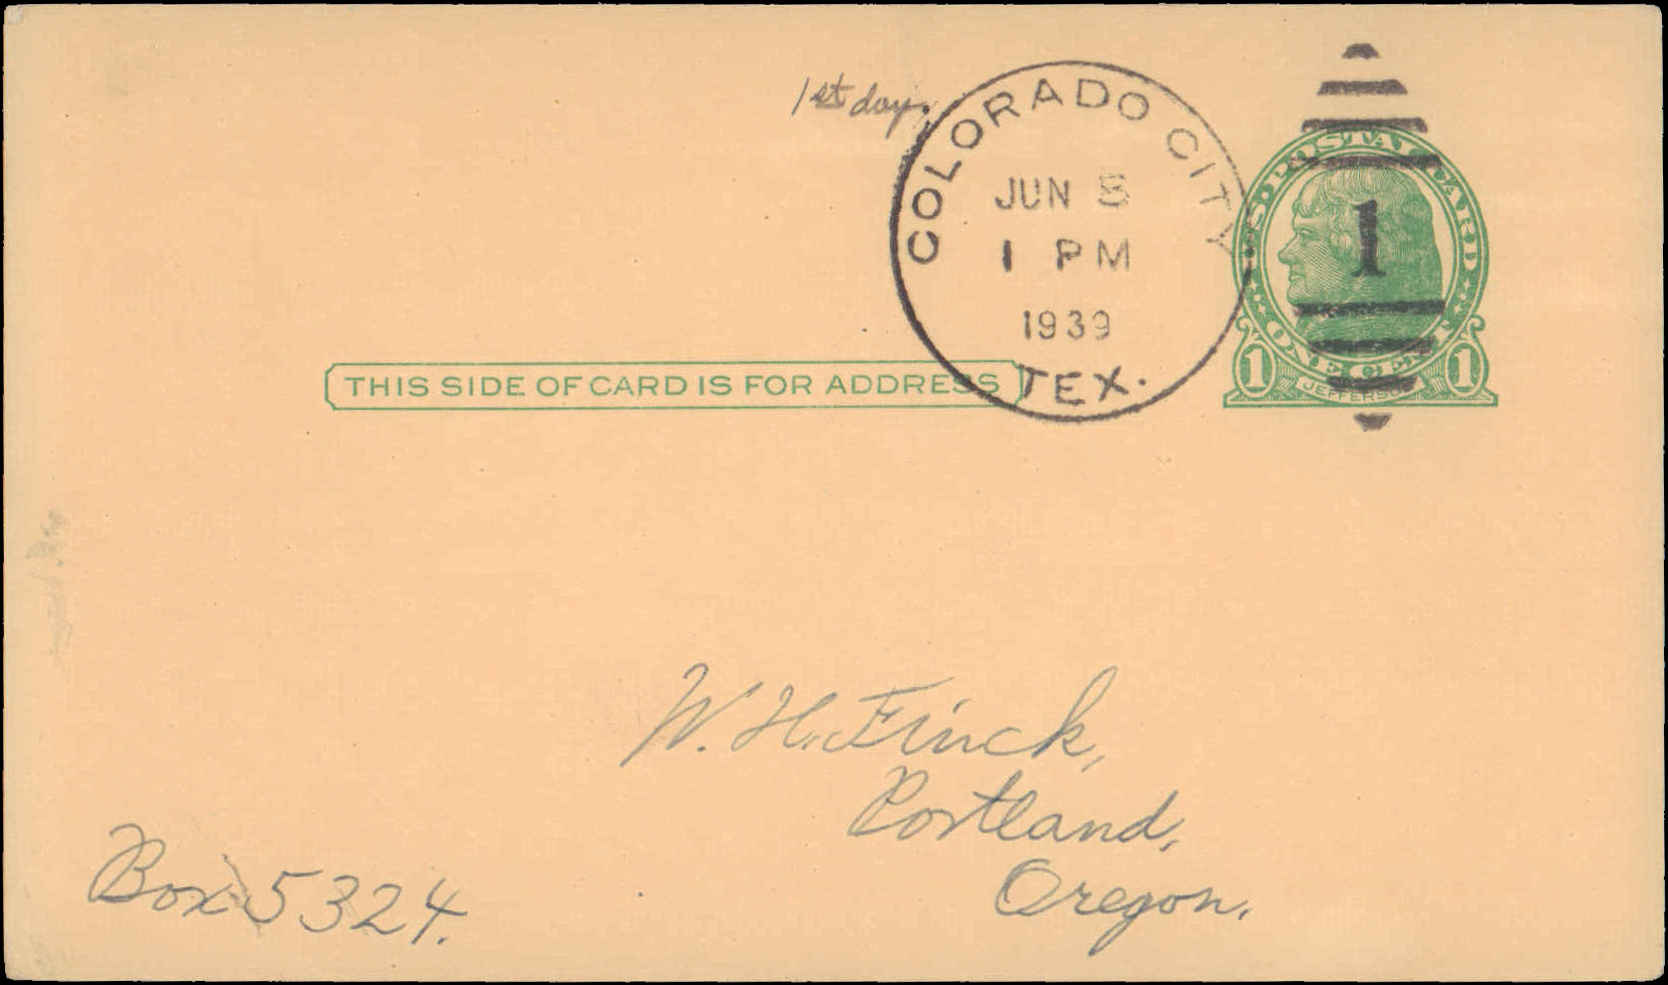 1st day.
COLORADO CITY
JUN 5
1 PM
1939
TEX.
U.S. POSTAL CARD
1
ONE CENT
1 JEFFERSON 1
THIS SIDE OF CARD IS FOR ADDRESS
W. H. Finck,
Portland,
Oregon.
Box 5324.